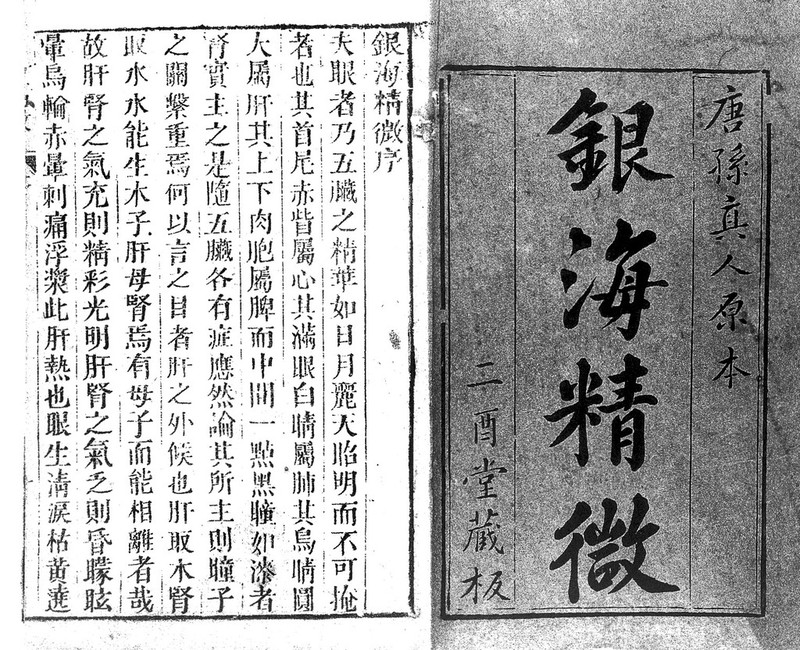 唐孫真人原本
銀海精微
二酉堂藏板
銀海精微序
夫眼者乃五臟之精華如日月麗天昭明而不可掩
者也其首尾赤眥屬心其滿眼白睛屬肺其烏睛圓
大屬肝其上下肉胞屬脾而中間一點黑瞳如漆者
腎實主之是隨五臟各有症應然論其所主則瞳子
之關繫重焉何以言之目者肝之外候也肝取木腎
取水水能生木子肝母腎焉有母子而能相離者哉
故肝腎之氣充則精彩光明肝腎之氣乏則昏矇眩
暈烏輪赤暈刺痛浮漿此肝熱也眼生清淚枯黃遶